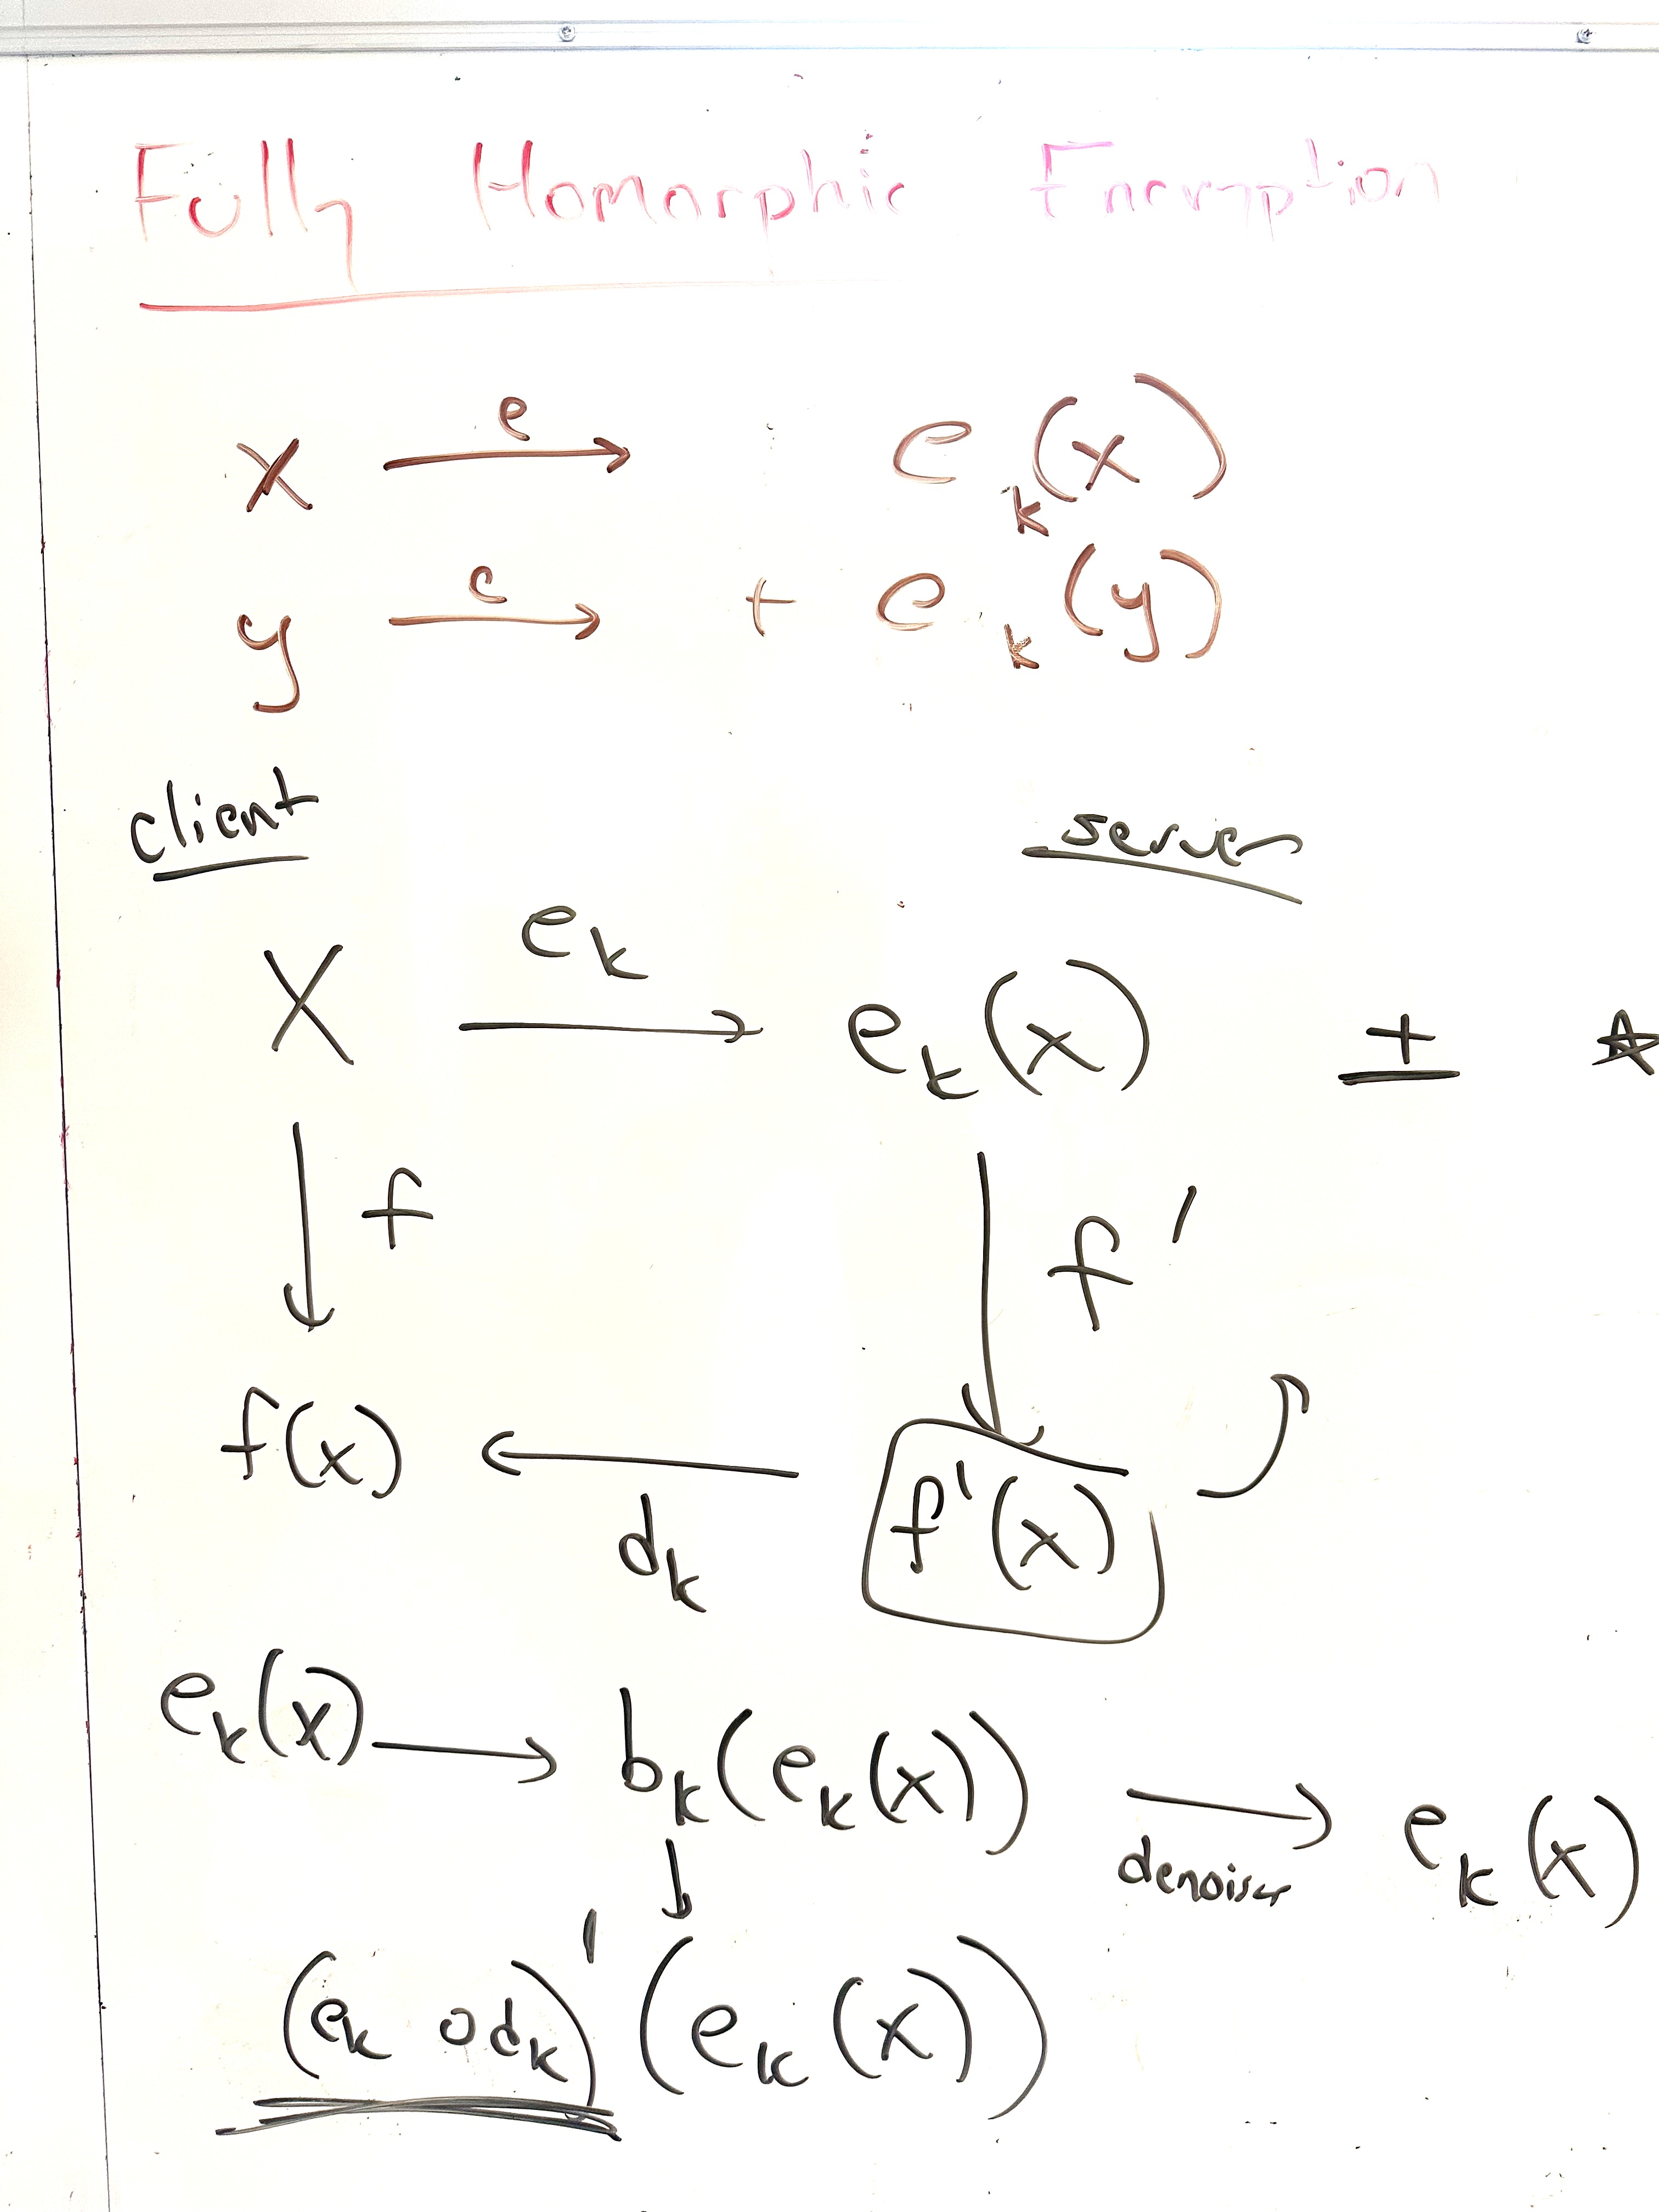 Fully Homorphic Encryption
x e→ e_k(x)
y e→ + e_k(y)
client server
X e_k→ e_k(x) + ☆
↓ f ↓ f'
f(x) ←d_k f'(x)
e_k(x) → b_k(e_k(x)) → e_k(x)
↓ denoiser
(e_k o d_k)' (e_k(x))